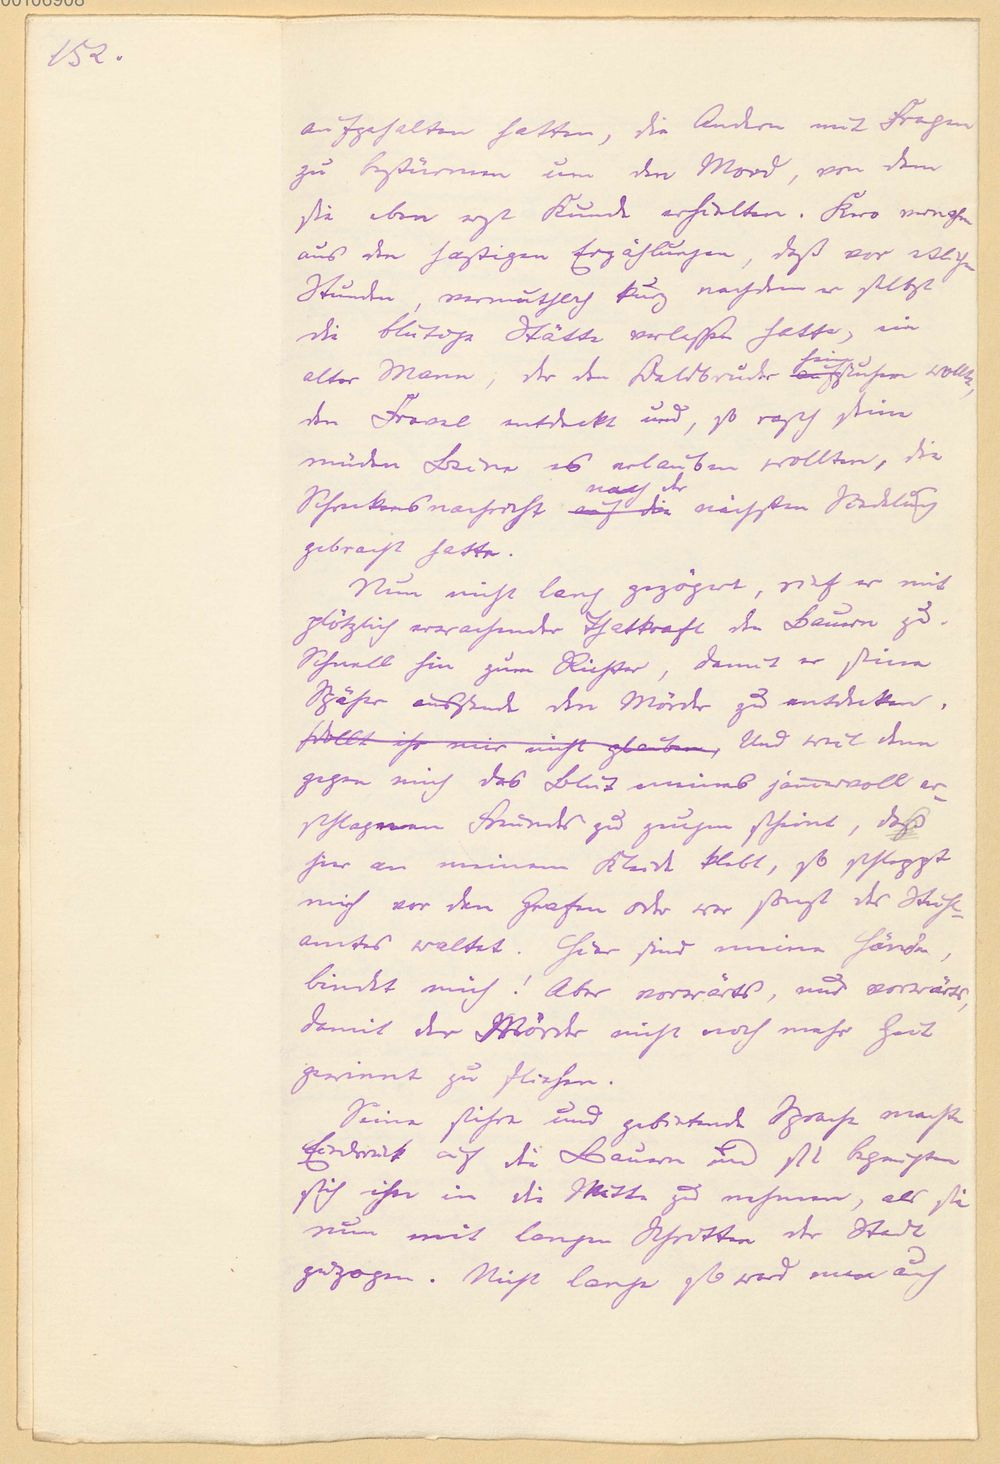 152.
aufgehalten hatten, die Andern mit Fragen
zu bestürmen um den Mord, von dem
sie eben erst Kunde erhielten. Kero vernahm
aus den hastigen Erzählungen, daß vor etlichen
Stunden, vermuthlich kurz nachdem er selbst
die blutige Stätte verlassen hatte, ein
alter Mann, der den Waldbruder heimsuchen wollte,
den Frevel entdeckt und, so rasch seine
müden Beine es erlauben wollten, die
Schreckensnachricht nach der nächsten Siedelung
gebracht hatte.
Nun nicht lang gezögert, rief er mit
plötzlich erwachender Thatkraft den Bauern zu.
Schnell hin zum Richter, damit er seine
Späher aussende den Mörder zu entdecken.
Wollt ihr mir nicht glauben, Und weil denn
gegen mich das Blut meines jammervoll er-
schlagenen Freundes zu zeugen scheint, das
hier an meinem Kleide klebt, so schleppt
mich vor den Grafen oder wer sonst des Richt-
amtes waltet. Hier sind meine Hände,
bindet mich! Aber vorwärts, nur vorwärts,
damit der Mörder nicht noch mehr Zeit
gewinnt zu fliehen.
Seine sichre und gebietende Sprache machte
Eindruck auf die Bauern und sie begnügten
sich ihn in die Mitte zu nehmen, als sie
nun mit langen Schritten der Stadt
zuzogen. Nicht lange so ward man auch